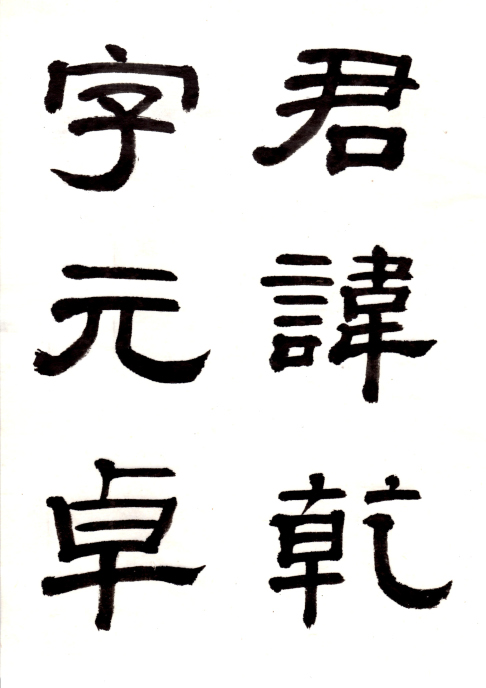 君諱乾
字元卓